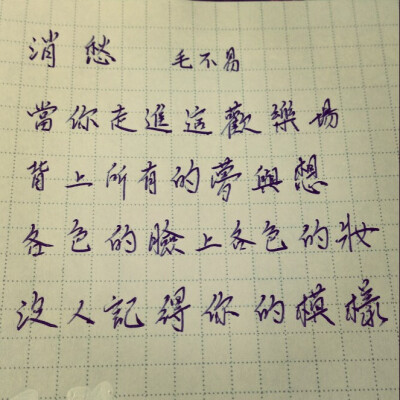 消愁 毛不易
當你走進這歡樂場
背上所有的夢與想
各色的臉上各色的妝
沒人記得你的模樣